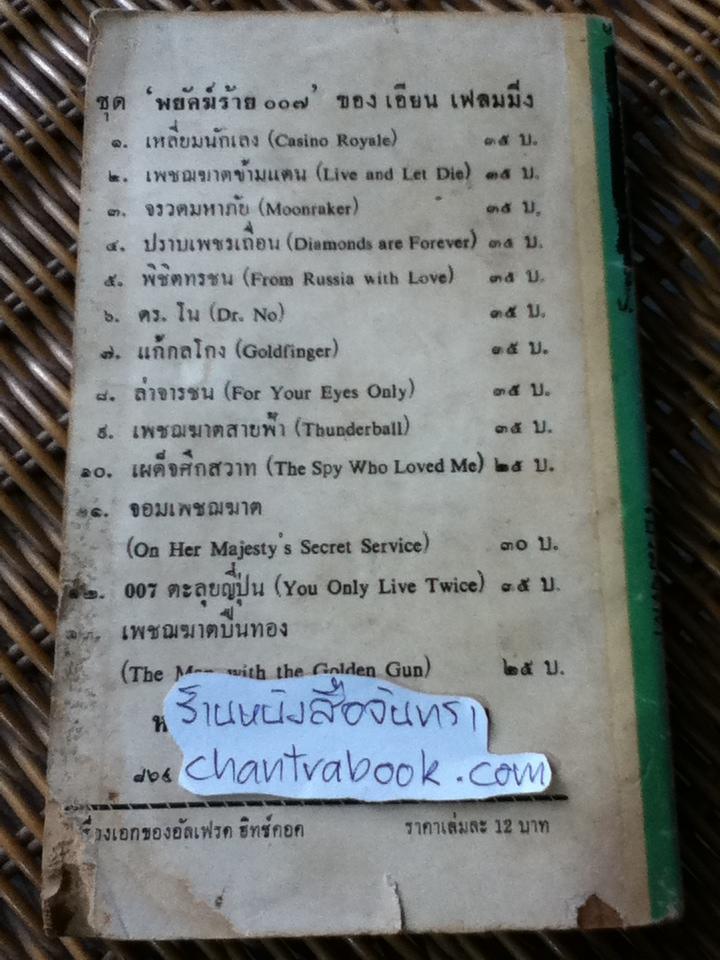 ชุด 'พยัคฆ์ร้าย ๐๐๗' ของ เอียน เฟลมมิ่ง
๑. เหลี่ยมนักเลง (Casino Royale) ๓๕ บ.
๒. เพชฌฆาตข้ามแดน (Live and Let Die) ๓๕ บ.
๓. จรวดมหาภัย (Moonraker) ๓๕ บ.
๔. ปราบเพชรเถื่อน (Diamonds are Forever) ๓๕ บ.
๕. พิชิตทรชน (From Russia with Love) ๓๕ บ.
๖. ดร. โน (Dr. No)
๗. แก้กลโกง (Goldfinger) ๓๕ บ.
๘. ล่าจารชน (For Your Eyes Only) ๓๕ บ.
๙. เพชฌฆาตสายฟ้า (Thunderball) ๓๕ บ.
๑๐. เผด็จศึกสวาท (The Spy Who Loved Me) ๒๕ บ.
๑๑. จอมเพชฌฆาต
(On Her Majesty's Secret Service) ๓๐ บ.
๑๒. 007 ตะลุยญี่ปุ่น (You Only Live Twice) ๓๕ บ.
เพชฌฆาตปืนทอง
(The Man with the Golden Gun) ๒๕ บ.
ร้านหนังสือจันทรา
chantrabook.com
เรื่องเอกของอัลเฟรด ฮิทช์คอค ราคาเล่มละ 12 บาท